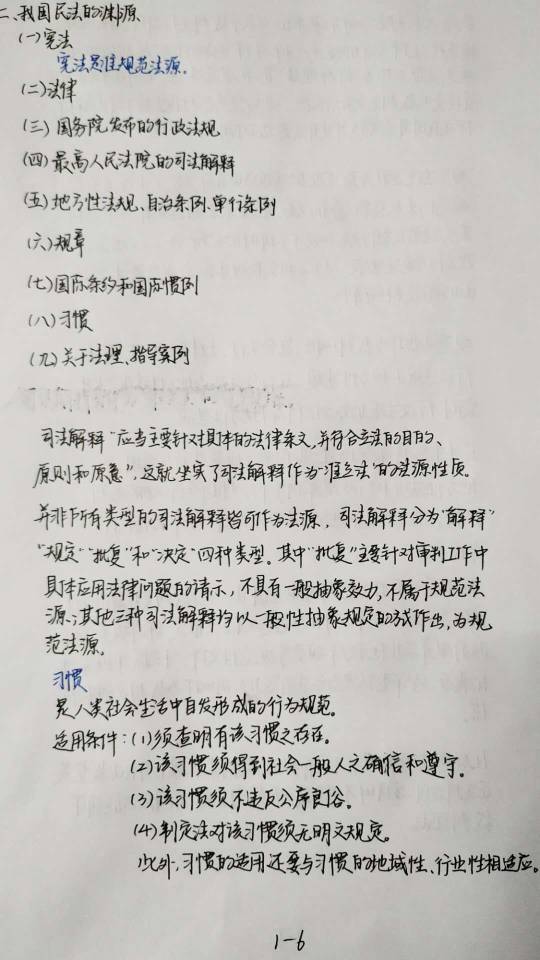 二、我国民法的渊源
(一)宪法
宪法是准规范法源。
(二)法律
(三)国务院发布的行政法规
(四)最高人民法院的司法解释
(五)地方性法规、自治条例、单行条例
(六)规章
(七)国际条约和国际惯例
(八)习惯
(九)关于法理、指导案例
司法解释“应当主要针对具体的法律条文,并符合立法的目的、
原则和原意”,这就坐实了司法解释作为“准立法”的法源性质。
并非所有类型的司法解释皆可作为法源,司法解释分为“解释”
“规定”“批复”和“决定”四种类型。其中“批复”主要针对审判工作中
具体应用法律问题的请示,不具有一般抽象效力,不属于规范法
源;其他三种司法解释均以一般性抽象规定的方式作出,为规
范法源。
习惯
是人类社会生活中自发形成的行为规范。
适用条件:(1)须查明有该习惯之存在。
(2)该习惯须得到社会一般人之确信和遵守。
(3)该习惯须不违反公序良俗。
(4)制定法对该习惯须无明文规定。
此外,习惯的适用还要与习惯的地域性、行业性相适应。
1-6